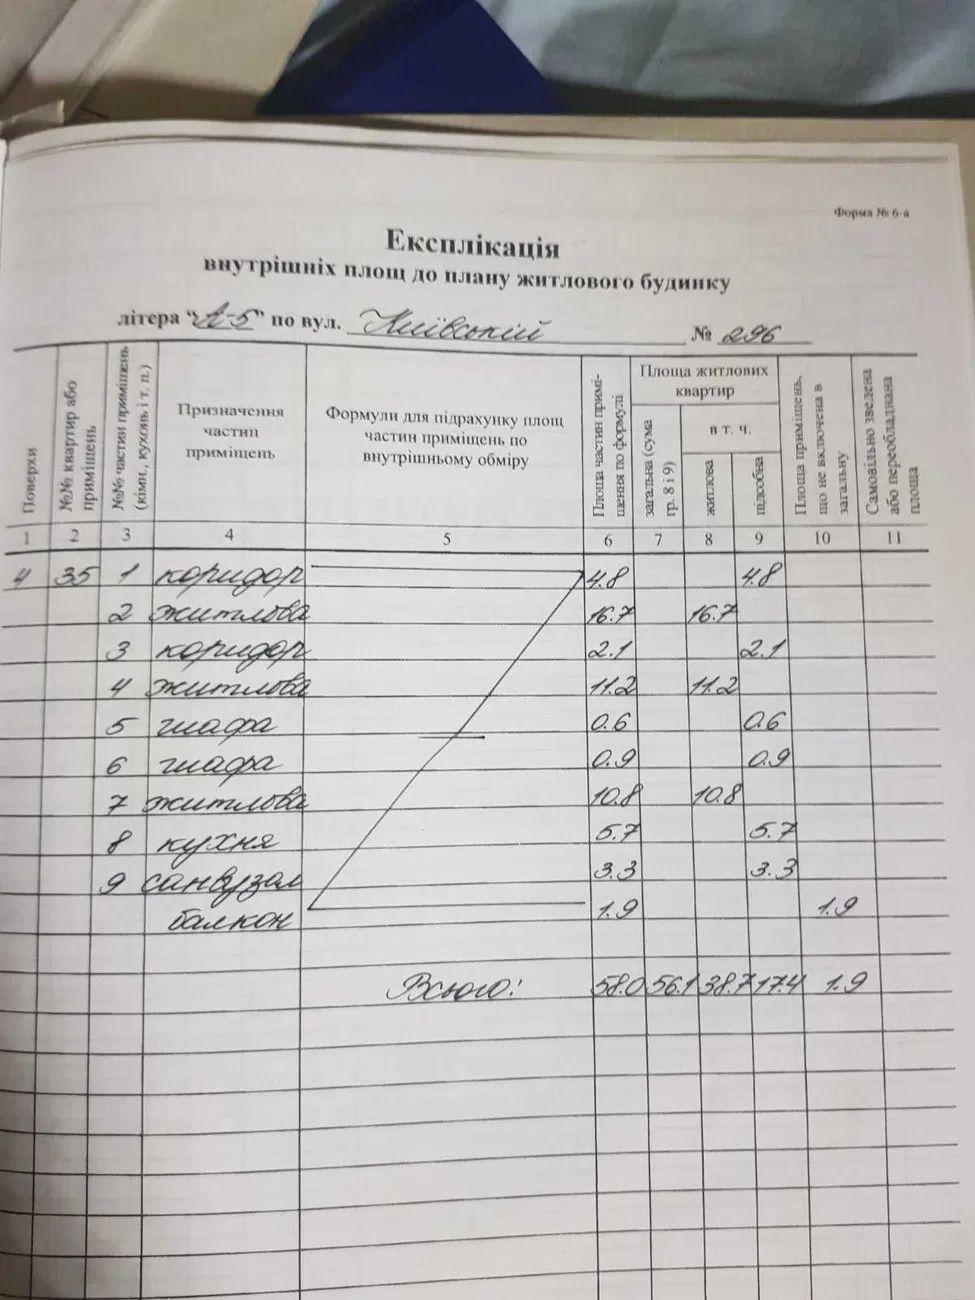 Форма № 6-а
Експлікація
внутрішніх площ до плану житлового будинку
літера "А-5" по вул. Київській № 296
Поверхи
№№ квартир або приміщень
№№ частин приміщень (кімн., кухонь і т. п.)
Призначення частин приміщень
Формули для підрахунку площ частин приміщень по внутрішньому обміру
Площа частин приміщення по формулі
Площа житлових квартир
загальна (сума гр. 8 і 9)
в т. ч.
житлова
підсобна
Площа приміщень, що не включена в загальну
Самовільно зведена або переобладнана площа
1 2 3 4 5 6 7 8 9 10 11
4 35 1 коридор 4.8 4.8
2 житлова 16.7 16.7
3 коридор 2.1 2.1
4 житлова 11.2 11.2
5 шафа 0.6 0.6
6 шафа 0.9 0.9
7 житлова 10.8 10.8
8 кухня 5.7 5.7
9 санвузол 3.3 3.3
балкон 1.9 1.9
Всього: 58.0 56.1 38.7 17.4 1.9